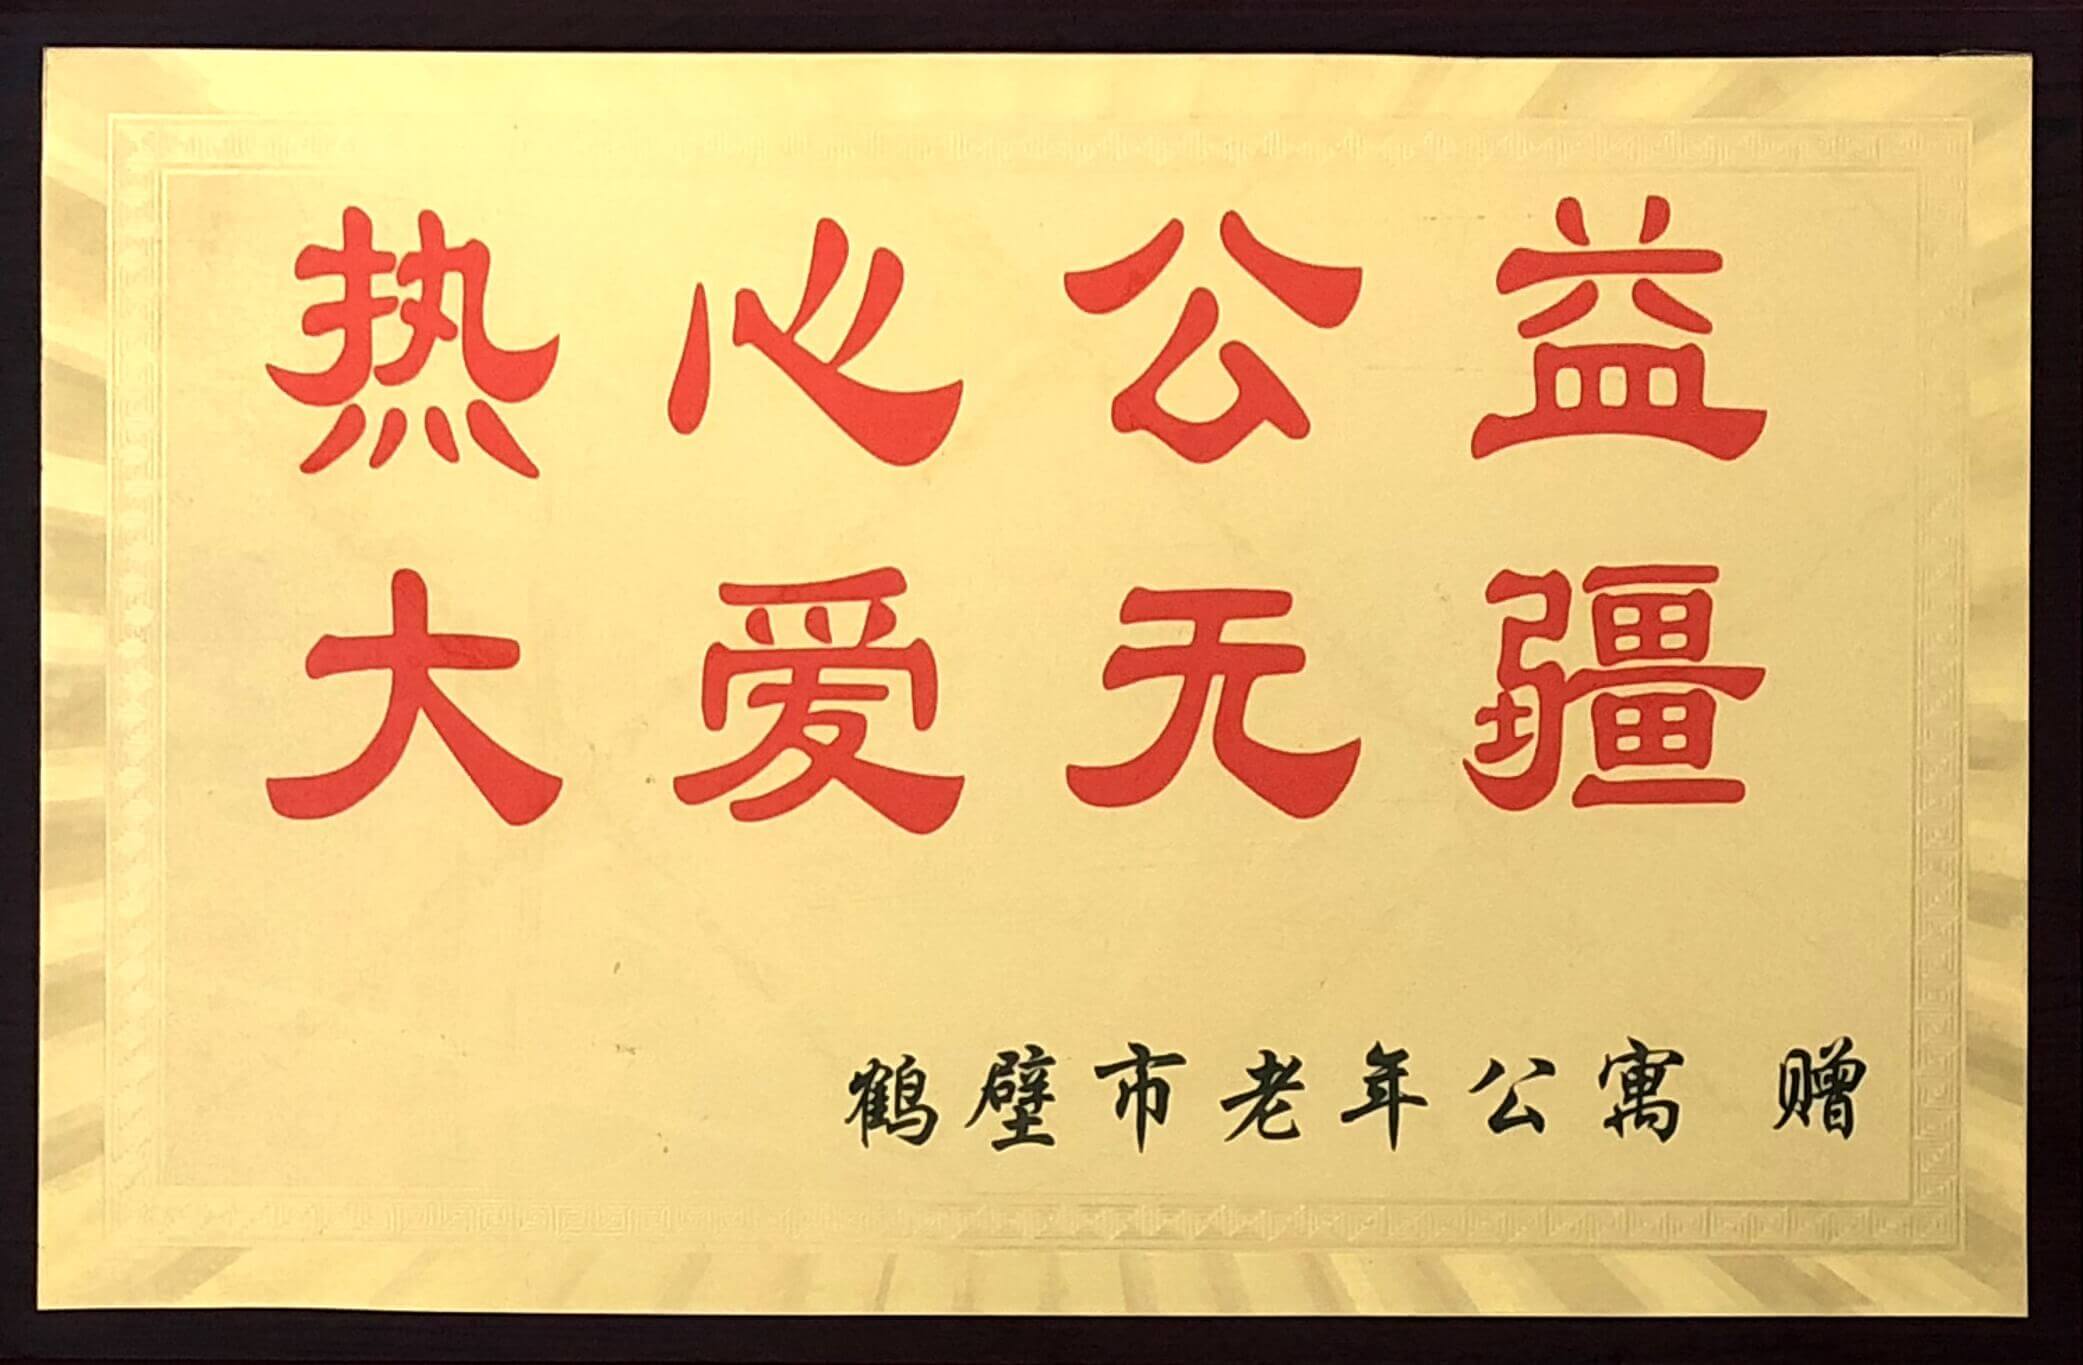 热心公益
大爱无疆
鹤壁市老年公寓 赠